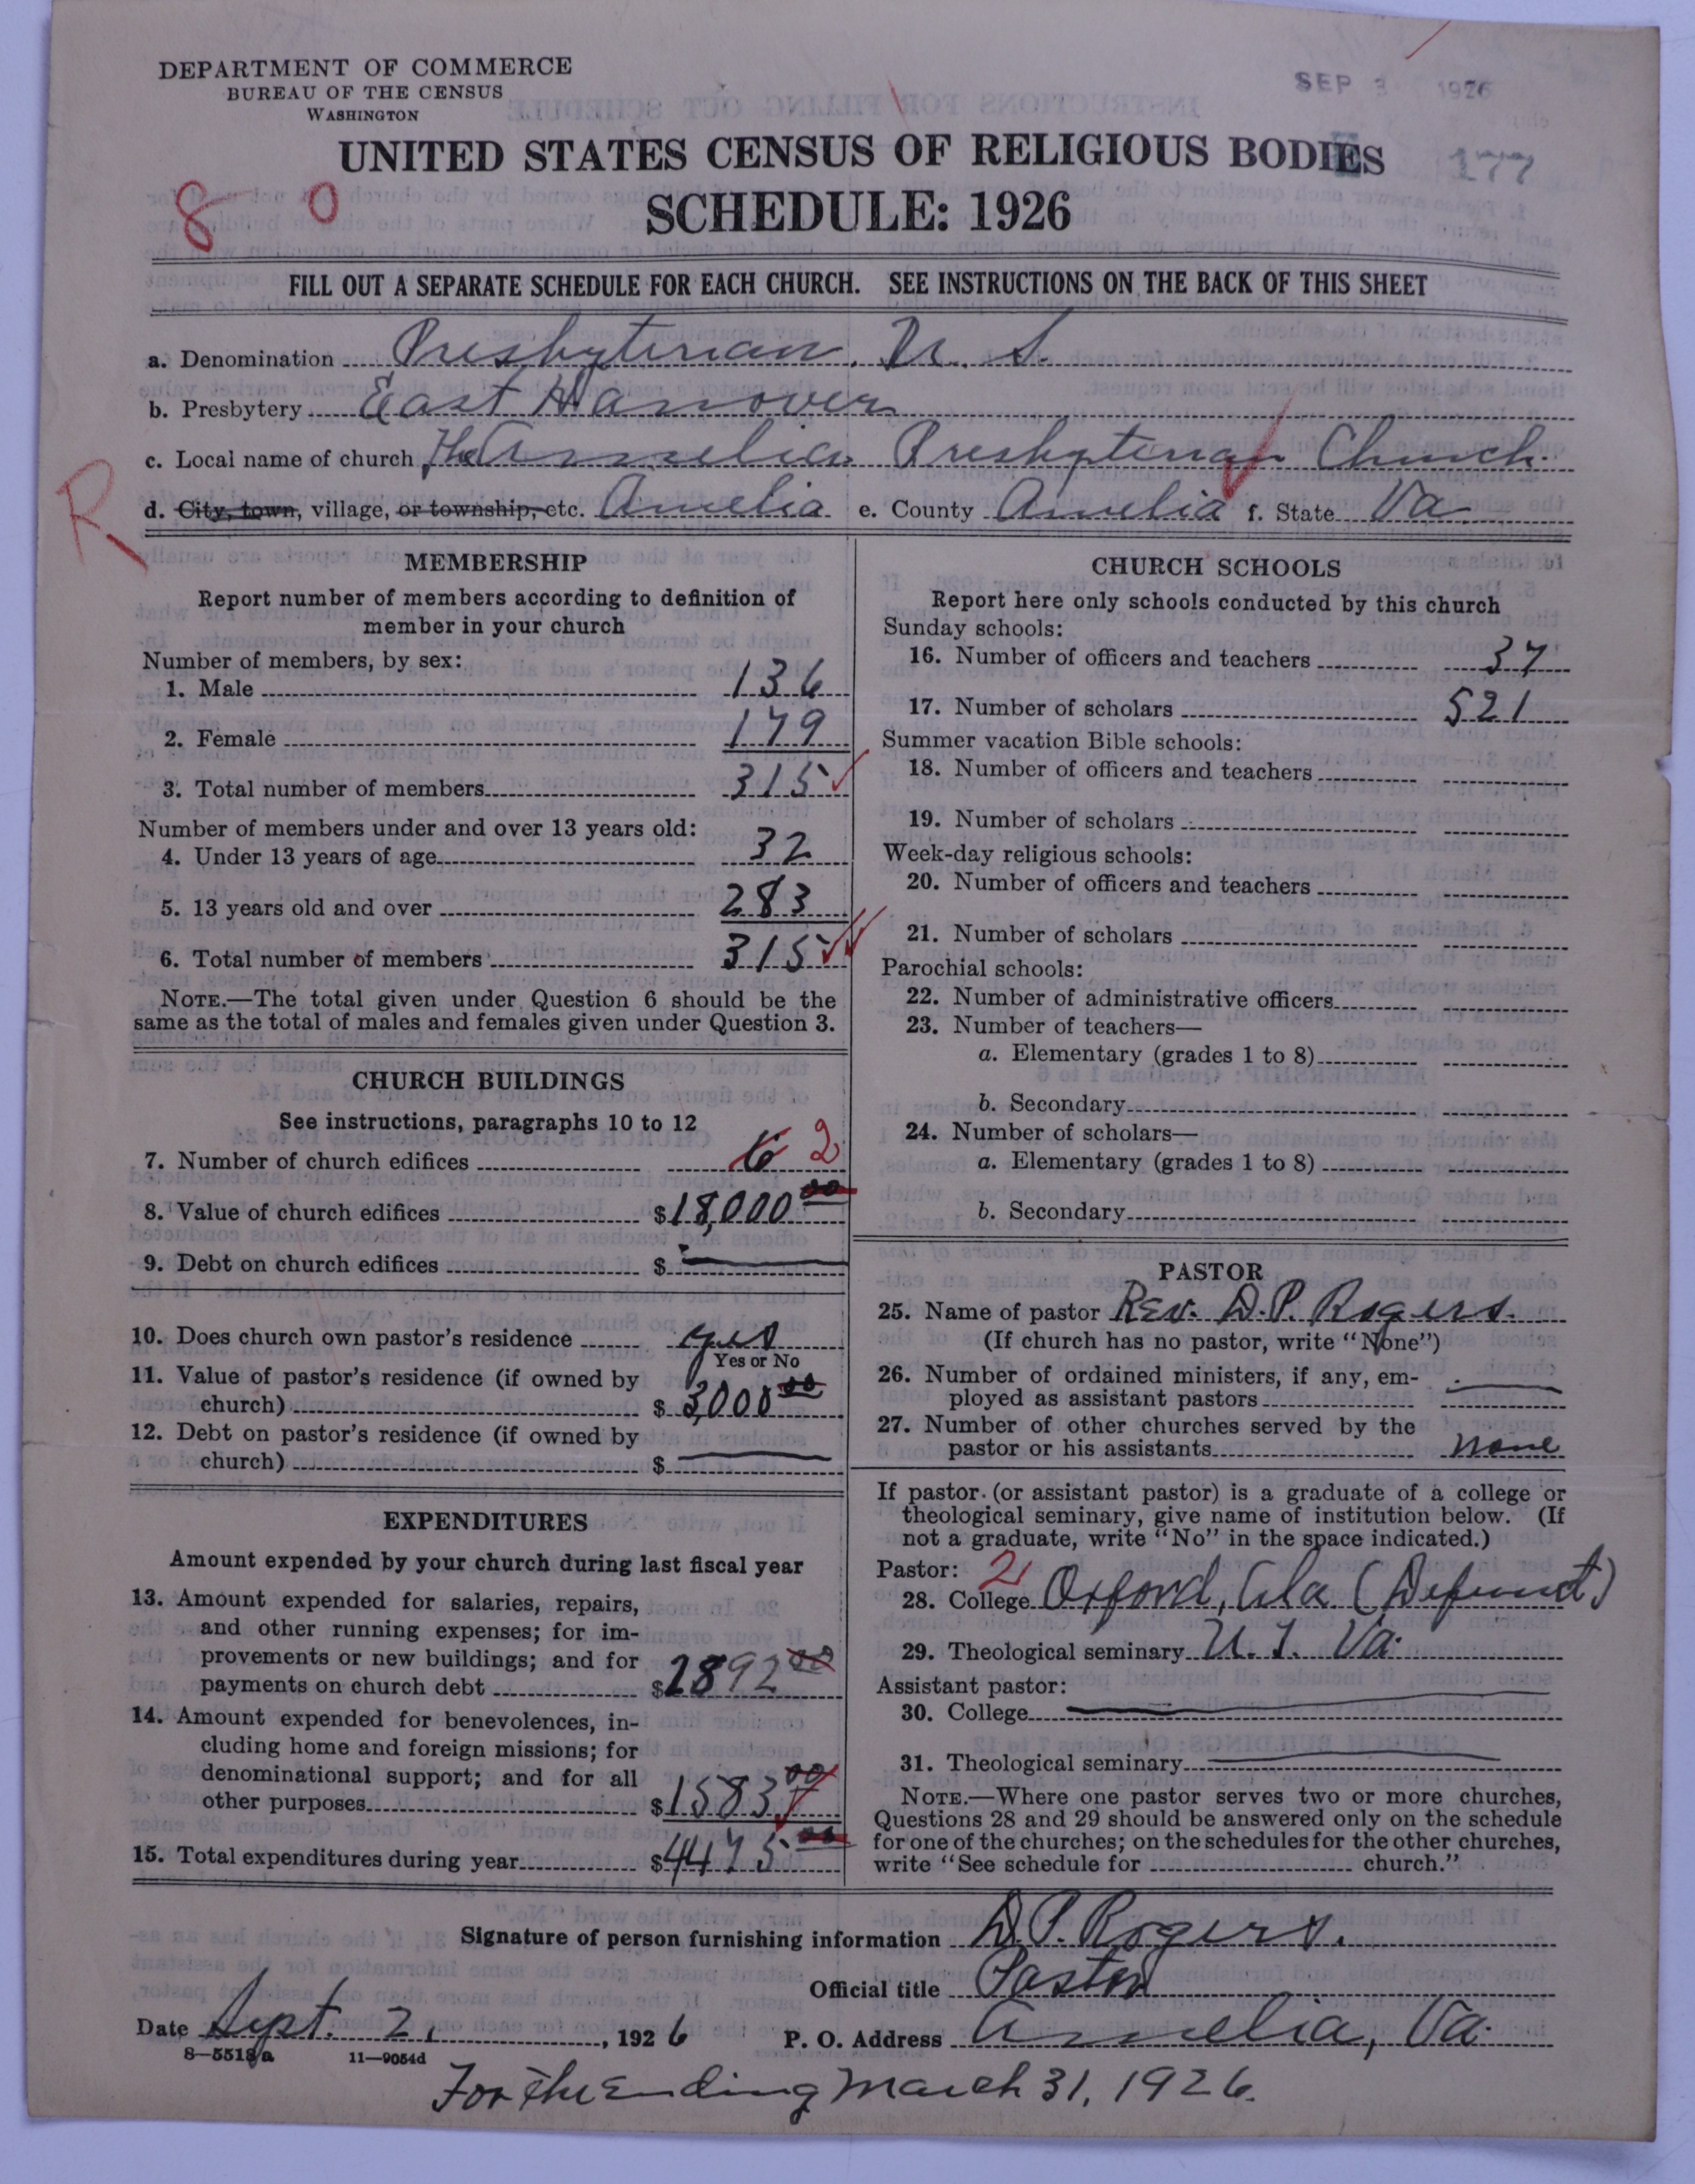 DEPARTMENT OF COMMERCE
BUREAU OF THE CENSUS
WASHINGTON
SEP 3 1926
UNITED STATES CENSUS OF RELIGIOUS BODIES
177
8 0
SCHEDULE: 1926
FILL OUT A SEPARATE SCHEDULE FOR EACH CHURCH. SEE INSTRUCTIONS ON THE BACK OF THIS SHEET
a. Denomination Presbyterian, U. S.
b. Presbytery East Hanover
c. Local name of church The Amelia Presbyterian Church
R
d. City, town, village, or township, etc. Amelia e. County Amelia f. State Va
MEMBERSHIP
Report number of members according to definition of
member in your church
Number of members, by sex:
1. Male 136
2. Female 179
3. Total number of members 315
Number of members under and over 13 years old:
4. Under 13 years of age 32
5. 13 years old and over 283
6. Total number of members 315
NOTE.—The total given under Question 6 should be the
same as the total of males and females given under Question 3.
CHURCH BUILDINGS
See instructions, paragraphs 10 to 12
7. Number of church edifices 6 2
8. Value of church edifices $18,000 00
9. Debt on church edifices $
10. Does church own pastor's residence yes
Yes or No
11. Value of pastor's residence (if owned by
church) $3,000 00
12. Debt on pastor's residence (if owned by
church) $
EXPENDITURES
Amount expended by your church during last fiscal year
13. Amount expended for salaries, repairs,
and other running expenses; for im-
provements or new buildings; and for
payments on church debt $2892 00
14. Amount expended for benevolences, in-
cluding home and foreign missions; for
denominational support; and for all
other purposes $1583 00
15. Total expenditures during year $4475 00
CHURCH SCHOOLS
Report here only schools conducted by this church
Sunday schools:
16. Number of officers and teachers 37
17. Number of scholars 521
Summer vacation Bible schools:
18. Number of officers and teachers
19. Number of scholars
Week-day religious schools:
20. Number of officers and teachers
21. Number of scholars
Parochial schools:
22. Number of administrative officers
23. Number of teachers—
a. Elementary (grades 1 to 8)
b. Secondary
24. Number of scholars—
a. Elementary (grades 1 to 8)
b. Secondary
PASTOR
25. Name of pastor Rev. D. P. Rogers.
(If church has no pastor, write "None")
26. Number of ordained ministers, if any, em-
ployed as assistant pastors
27. Number of other churches served by the
pastor or his assistants none
If pastor (or assistant pastor) is a graduate of a college or
theological seminary, give name of institution below. (If
not a graduate, write "No" in the space indicated.)
Pastor: 21
28. College Oxford, Ala. (Defunct)
29. Theological seminary U. T. Va.
Assistant pastor:
30. College
31. Theological seminary
NOTE.—Where one pastor serves two or more churches,
Questions 28 and 29 should be answered only on the schedule
for one of the churches; on the schedules for the other churches,
write "See schedule for church."
Signature of person furnishing information D. P. Rogers.
Official title Pastor
Date Sept. 2, 1926 P. O. Address Amelia, Va.
8—5518a 11—9054d
For the Ending March 31, 1926.